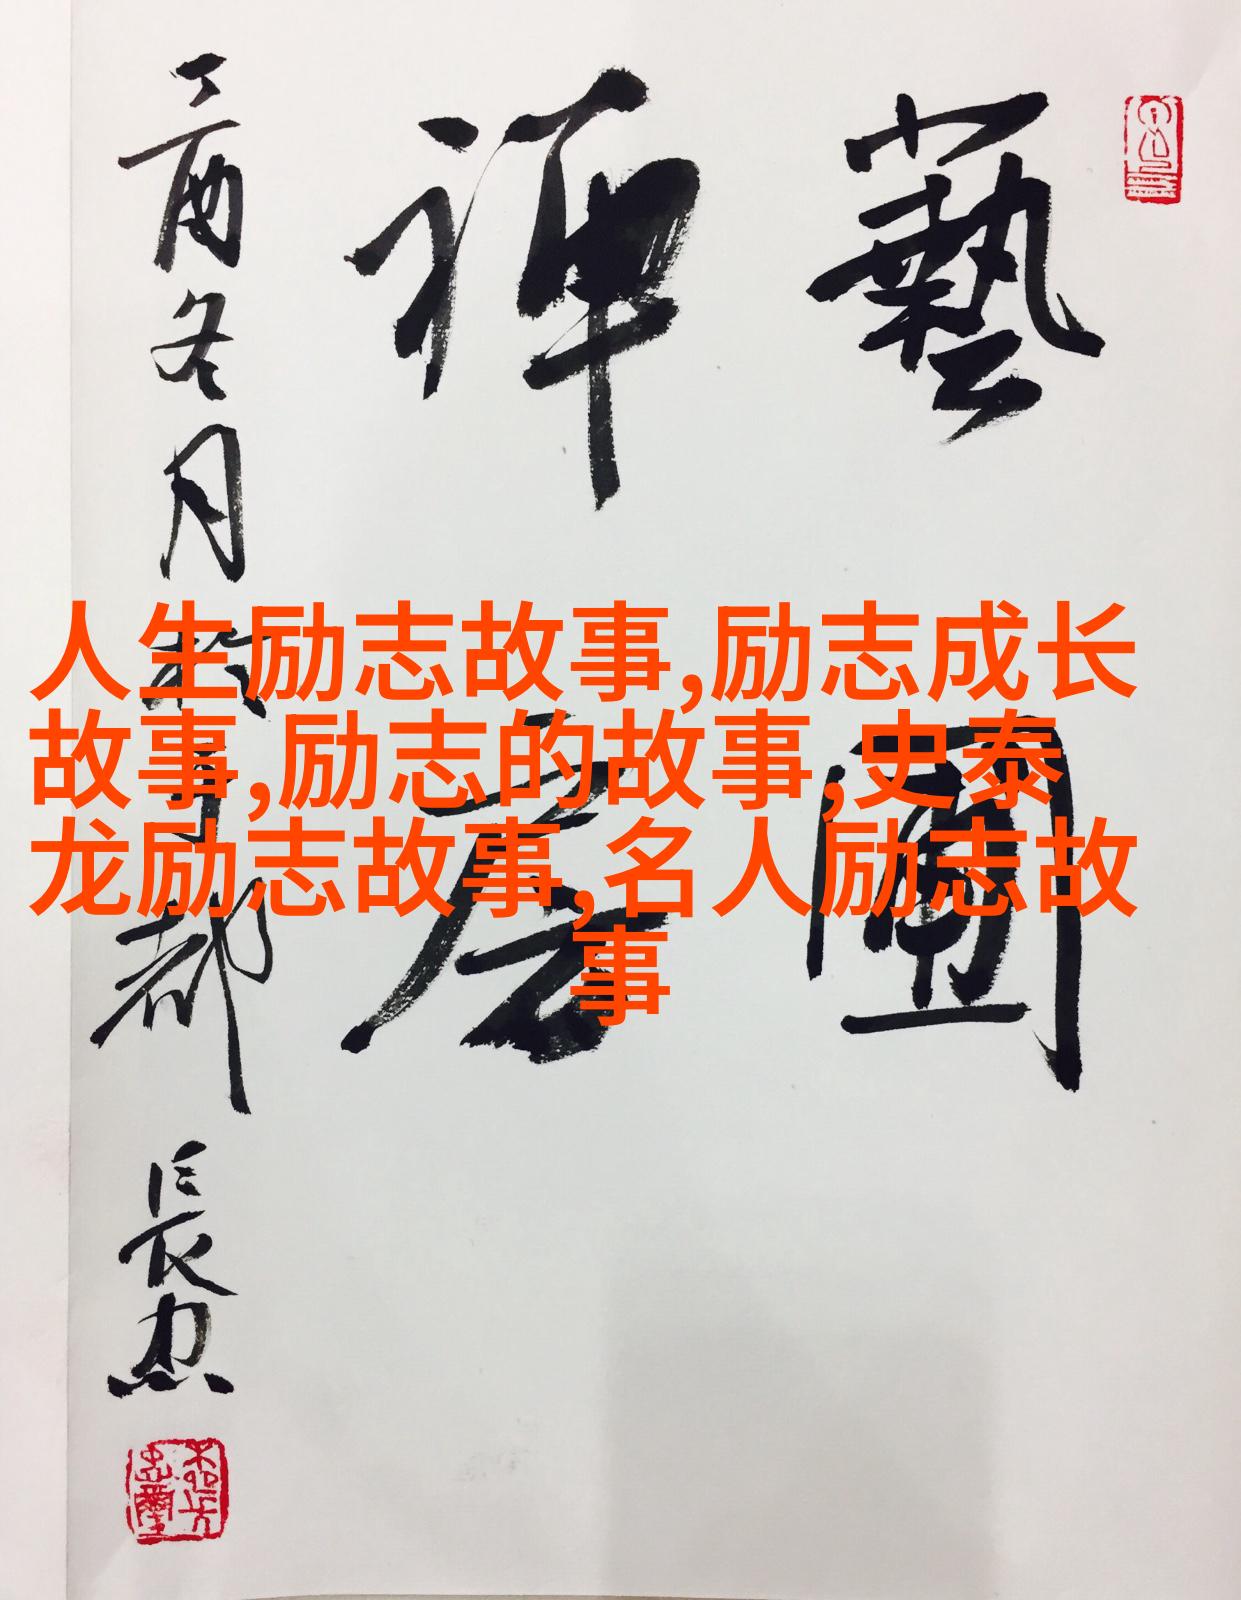 人生励志故事,励志成长
故事,励志的故事,史泰
龙励志故事,名人励志故
事
藝
禪
丁酉冬月於 都 長忠